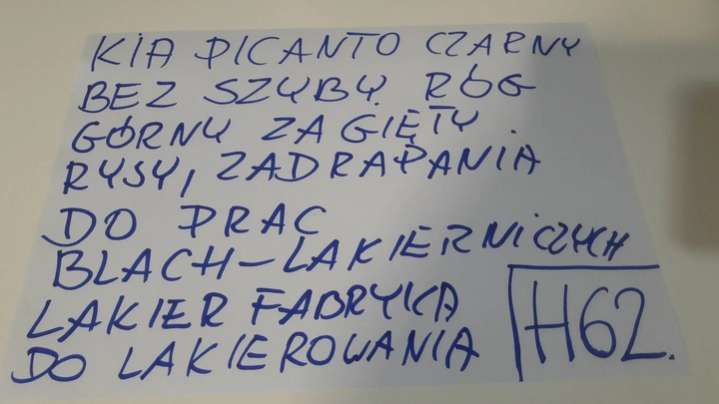 KIA PICANTO CZARNY
BEZ SZYBY. RÓG
GÓRNY ZAGIĘTY.
RYSY, ZADRAPANIA
DO PRAC
BLACH-LAKIERNICZYCH
LAKIER FABRYKA
DO LAKIEROWANIA
H62.